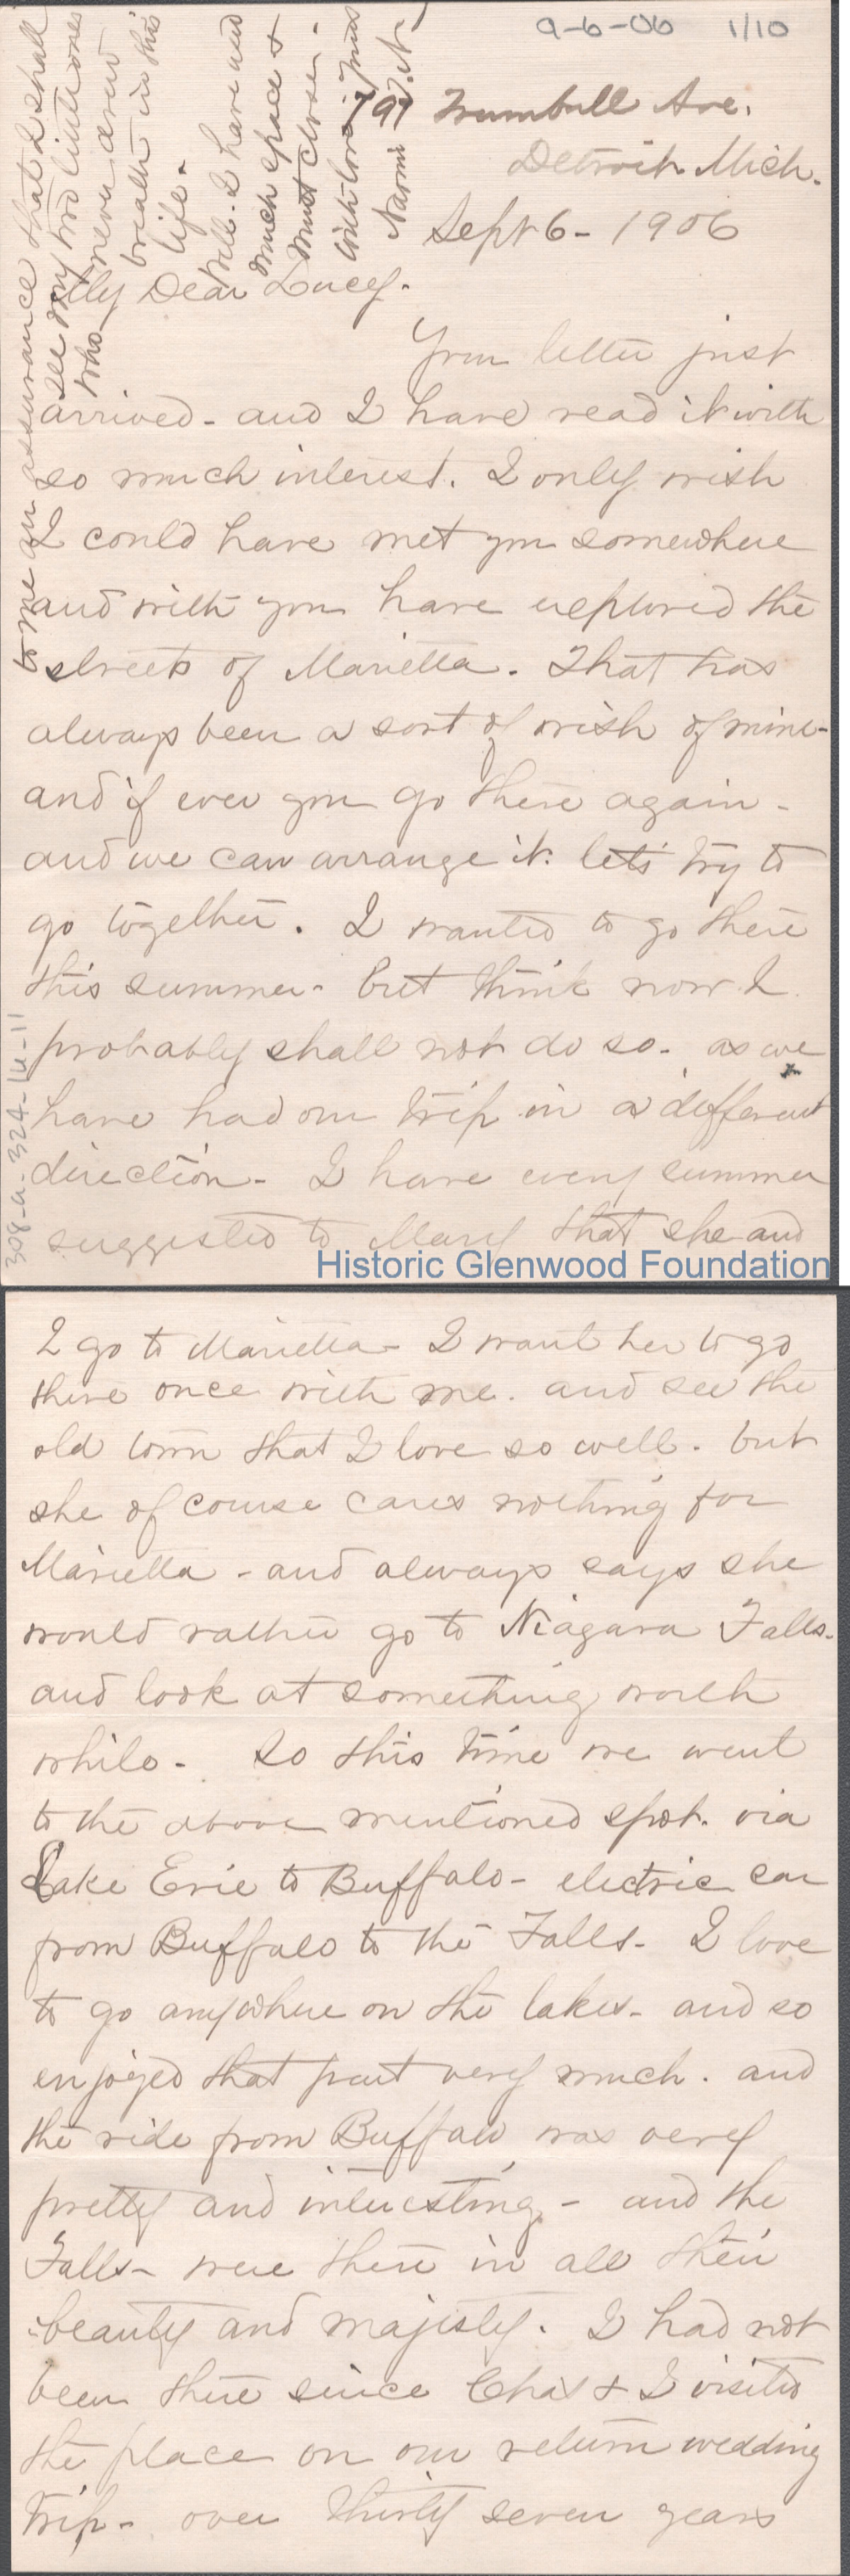 9-6-06 1/10
797 Trumbull Ave.
Detroit. Mich.
Sept 6 - 1906
My Dear Lucy.
Your letter just
arrived - and I have read it with
so much interest. I only wish
I could have met you somewhere
and with you have explored the
streets of Marietta. That has
always been a sort of wish of mine -
and if ever you go there again -
and we can arrange it. let's try to
go together. I wanted to go there
this summer - but think now I
probably shall not do so - as we
have had our trip in a different
direction - I have every summer
suggested to Mary that she and
to me an assurance that I shall
see my two little ones
who never drew
breath in this
life.
Well - I have used
much space &
must close -
with love - Yours
Naomi T. N.
308-a-324-14-11
Historic Glenwood Foundation
I go to Marietta - I want her to go
there once with me. and see the
old town that I love so well. but
she of course cares nothing for
Marietta - and always says she
would rather go to Niagara Falls -
and look at something worth
while - So this time we went
to the above mentioned spot. via
Lake Erie to Buffalo - electric car
from Buffalo to the Falls - I love
to go anywhere on the lakes - and so
enjoyed that part very much. and
the ride from Buffalo was very
pretty and interesting - and the
Falls - were there in all their
beauty and majesty. I had not
been there since Chas & I visited
the place on our return wedding
trip - over thirty seven years